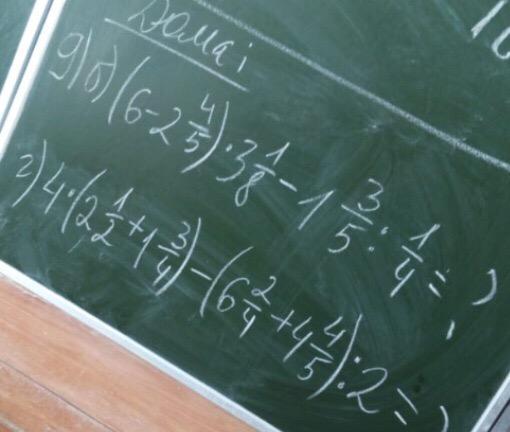 Дома:
9) б) (6 - 2 4/5) · 3 1/8 - 1 3/5 : 1/4 = ;
г) 4 · (2 1/2 + 1 3/4) - (6 2/4 + 4 4/5) : 2 = ;